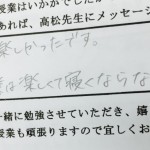 授業はいかがでしたか
あれば、高松先生にメッセージ
楽しかったです。
は楽しくて寝くならな
一緒に勉強させていただき、嬉
授業も頑張りますので宜しくお